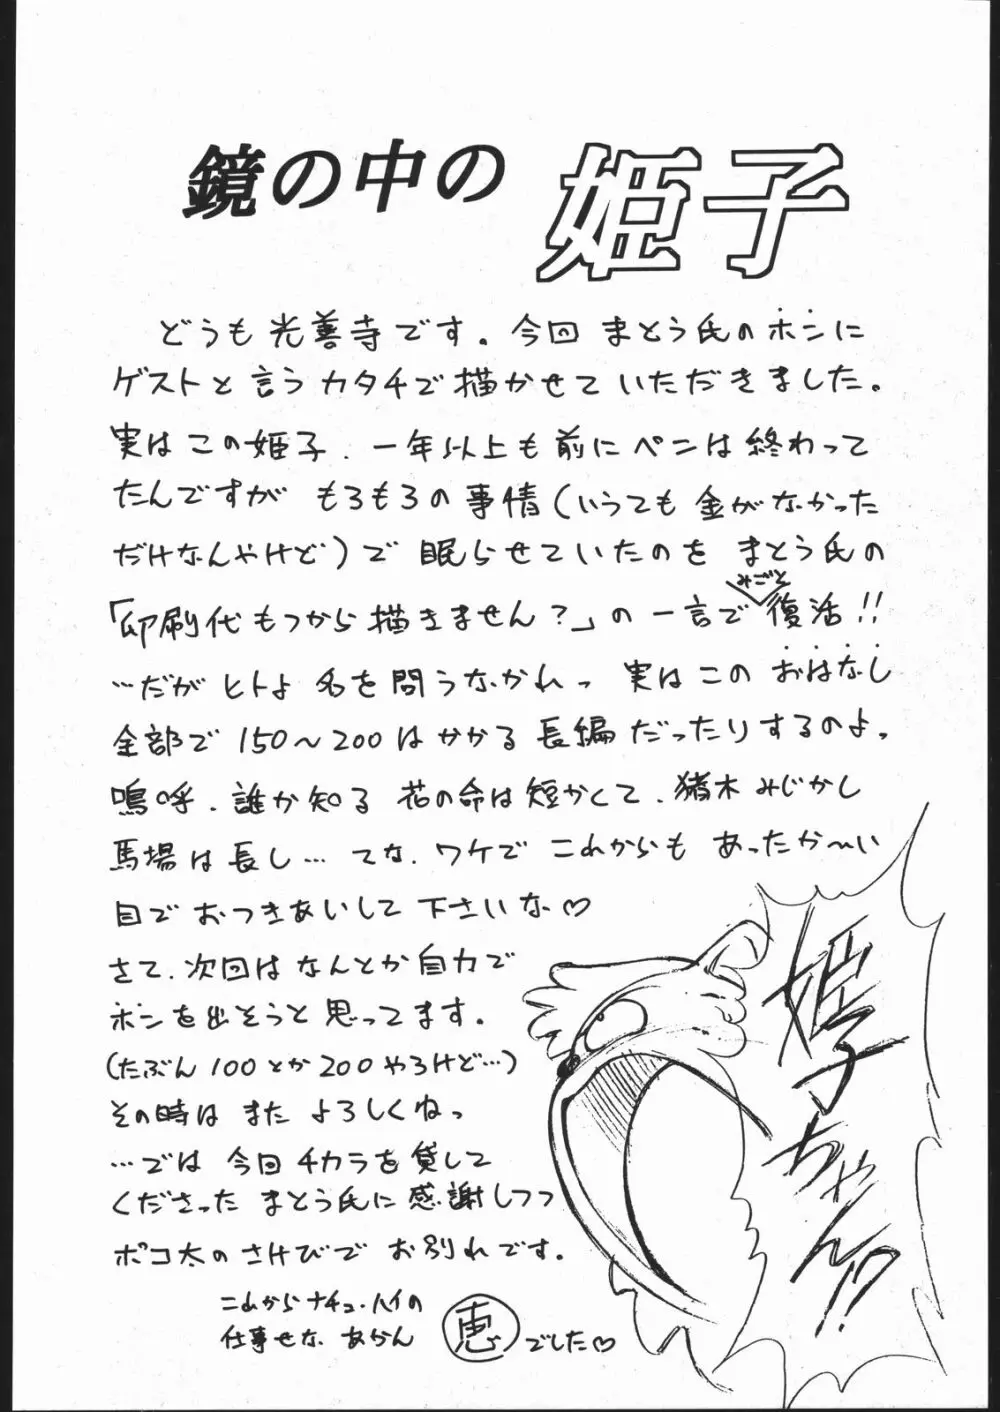 鏡の中の 姫子
どうも光善寺です。今回 まとう氏のホンに
ゲストと言うカタチで描かせていただきました。
実はこの姫子、一年以上も前にペンは終わって
たんですが もろもろの事情(いうても金がなかった
だけなんやけど)で 眠らせていたのを まとう氏の
「印刷代もつから描きません?」の一言で みごと 復活!!
…だがヒトよ 名を問うなかれっ 実はこの おはなし
全部で 150〜200はかかる長編だったりするのよっ
嗚呼、誰か知る 花の命は短かくて、猪木みじかし
馬場は長し… てな、ワケで これからも あったか〜い
目で おつきあいして下さいな♡
さて、次回は なんとか自力で
ホンを出そうと思ってます。
(たぶん100とか200やろけど…)
その時は また よろしくねっ
…では 今回チカラを貸して
くださった まとう氏に感謝しつつ
ポコ太のさけびで お別れです。
これからナチュ・ハイの
仕事せな あかん 恵 でした♡
姫子ちゃん!?